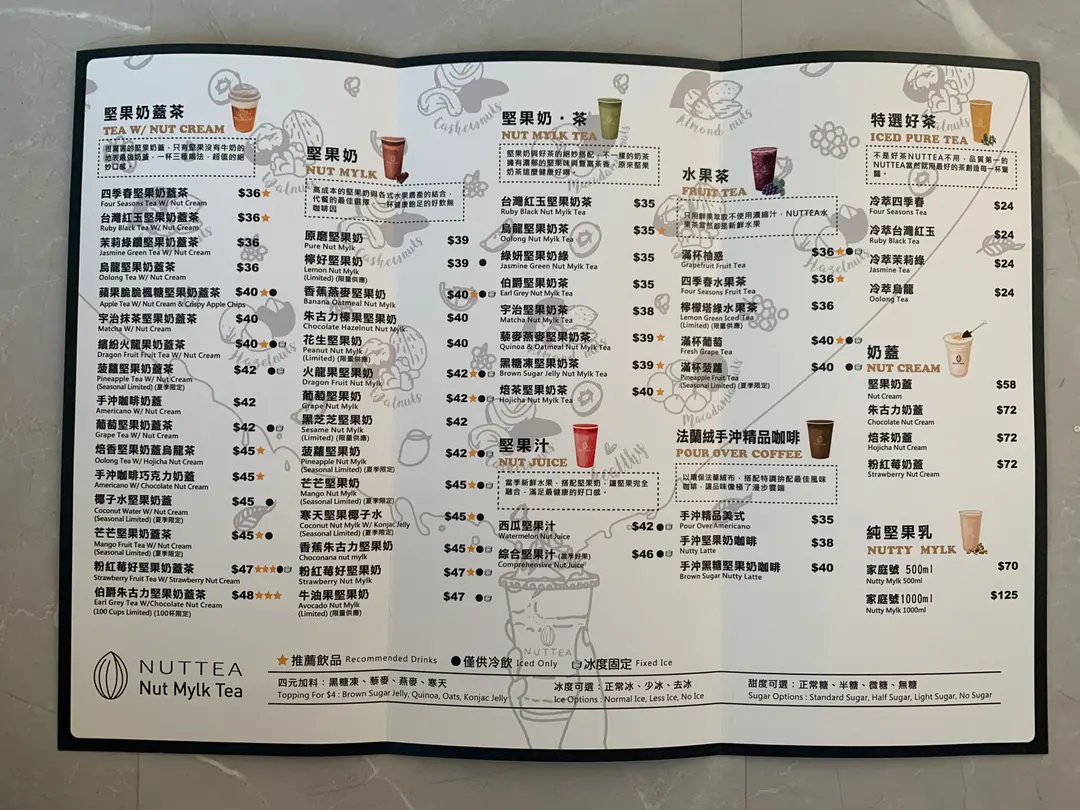 堅果奶蓋茶
TEA W/ NUT CREAM
四季春堅果奶蓋茶 $36
Four Seasons Tea W/ Nut Cream
台灣紅玉堅果奶蓋茶 $36
Ruby Black Tea W/ Nut Cream
茉莉綠鑽堅果奶蓋茶 $36
Jasmine Green Tea W/ Nut Cream
烏龍堅果奶蓋茶 $36
Oolong Tea W/ Nut Cream
蘋果脆脆楓糖堅果奶蓋茶 $40
Apple Tea W/ Nut Cream & Crispy Apple Chips
宇治抹茶堅果奶蓋茶 $40
Matcha W/ Nut Cream
繽紛火龍果堅果奶蓋茶 $40
Dragon Fruit Fruit Tea W/ Nut Cream
菠蘿堅果奶蓋茶 $42
Pineapple Tea W/ Nut Cream
(Seasonal Limited) (夏季限定)
手沖咖啡奶蓋 $42
Americano W/ Nut Cream
葡萄堅果奶蓋茶 $42
Grape Tea W/ Nut Cream
焙香堅果奶蓋烏龍茶 $45
Oolong Tea W/ Hojicha Nut Cream
手沖咖啡巧克力奶蓋 $45
Americano W/ Chocolate Nut Cream
椰子水堅果奶蓋 $45
Coconut Water W/ Nut Cream
(Seasonal Limited) (夏季限定)
芒芒堅果奶蓋茶 $45
Mango Fruit Tea W/ Nut Cream
(Seasonal Limited) (夏季限定)
粉紅莓好堅果奶蓋茶 $47
Strawberry Fruit Tea W/ Strawberry Nut Cream
伯爵朱古力堅果奶蓋茶 $48
Earl Grey Tea W/Chocolate Nut Cream
(100 Cups Limited) (100杯限定)
堅果奶
NUT MYLK
高成本的堅果奶與各式水果最產的結合,
代餐的最佳選擇。一杯健康飽足的好飲無
咖啡因
原磨堅果奶 $39
Pure Nut Mylk
檸好堅果奶 $39
Lemon Nut Mylk
(Limited) (限量供應)
香蕉燕麥堅果奶 $40
Banana Oatmeal Nut Mylk
朱古力榛果堅果奶 $40
Chocolate Hazelnut Nut Mylk
花生堅果奶 $40
Peanut Nut Mylk
(Limited) (限量供應)
火龍果堅果奶 $42
Dragon Fruit Nut Mylk
葡萄堅果奶 $42
Grape Nut Mylk
黑芝芝堅果奶 $42
Sesame Nut Mylk
(Limited) (限量供應)
菠蘿堅果奶 $42
Pineapple Nut Mylk
(Seasonal Limited) (夏季限定)
芒芒堅果奶 $45
Mango Nut Mylk
(Seasonal Limited) (夏季限定)
寒天堅果椰子水 $45
Coconut Nut Mylk W/ Konjac Jelly
(Seasonal Limited) (夏季限定)
香蕉朱古力堅果奶 $45
Choconana nut mylk
粉紅莓好堅果奶 $47
Strawberry Nut Mylk
牛油果堅果奶 $47
Avocado Nut Mylk
(Limited) (限量供應)
堅果奶·茶
NUT MYLK TEA
堅果奶與好茶的絕妙搭配,不一樣的奶茶
擁有濃郁的堅果味與豐富茶香。原來堅果
奶茶這麼健康好喝。
台灣紅玉堅果奶茶 $35
Ruby Black Nut Mylk Tea
烏龍堅果奶茶 $35
Oolong Nut Mylk Tea
綠妍堅果奶綠 $35
Jasmine Green Nut Mylk Tea
伯爵堅果奶茶 $35
Earl Grey Nut Mylk Tea
宇治堅果奶茶 $38
Matcha Nut Mylk Tea
藜麥燕麥堅果奶茶 $39
Quinoa & Oatmeal Nut Mylk Tea
黑糖凍堅果奶茶 $39
Brown Sugar Jelly Nut Mylk Tea
焙茶堅果奶茶 $40
Hojicha Nut Mylk Tea
堅果汁
NUT JUICE
當季新鮮水果、搭配堅果奶,讓堅果完全
融合,滿足最健康的好口感。
西瓜堅果汁 $42
Watermelon Nut Juice
綜合堅果汁 (當季好果) $46
Comprehensive Nut Juice
水果茶
FRUIT TEA
只用鮮果萃取不使用濃縮汁,NUTTEA水
果茶當然都是新鮮水果
滿杯柚惑 $36
Grapefruit Fruit Tea
四季春水果茶 $36
Four Seasons Fruit Tea
檸檬塔綠水果茶 $36
Lemon Green Iced Tea
(Limited) (限量供應)
滿杯葡萄 $40
Fresh Grape Tea
滿杯菠蘿 $40
Pineapple Fruit Tea
(Seasonal Limited) (夏季限定)
法蘭絨手沖精品咖啡
POUR OVER COFFEE
以環保法蘭絨布,搭配特調拚配最佳風味
咖啡,讓品味像極了漫步雲端
手沖精品美式 $35
Pour Over Americano
手沖堅果奶咖啡 $38
Nutty Latte
手沖黑糖堅果奶咖啡 $40
Brown Sugar Nutty Latte
特選好茶
ICED PURE TEA
不是好茶NUTTEA不用,品質第一的
NUTTEA當然就用最好的茶創造每一杯驚
豔。
冷萃四季春 $24
Four Seasons Tea
冷萃台灣紅玉 $24
Ruby Black Tea
冷萃茉莉綠 $24
Jasmine Tea
冷萃烏龍 $24
Oolong Tea
奶蓋
NUT CREAM
堅果奶蓋 $58
Nut Cream
朱古力奶蓋 $72
Chocolate Nut Cream
焙茶奶蓋 $72
Hojicha Nut Cream
粉紅莓奶蓋 $72
Strawberry Nut Cream
純堅果乳
NUTTY MYLK
家庭號 500ml $70
Nutty Mylk 500ml
家庭號1000ml $125
Nutty Mylk 1000ml
Cashewnuts
Almond nuts
Hazelnuts
Walnuts
Macadamianuts
Healthy
NUTTEA
NUTTEA
Nut Mylk Tea
推薦飲品 Recommended Drinks 僅供冷飲 Iced Only 冰度固定 Fixed Ice
四元加料:黑糖凍、藜麥、燕麥、寒天
Topping For $4 : Brown Sugar Jelly, Quinoa, Oats, Konjac Jelly
冰度可選:正常冰、少冰、去冰
Ice Options : Normal Ice, Less Ice, No Ice
甜度可選:正常糖、半糖、微糖、無糖
Sugar Options : Standard Sugar, Half Sugar, Light Sugar, No Sugar